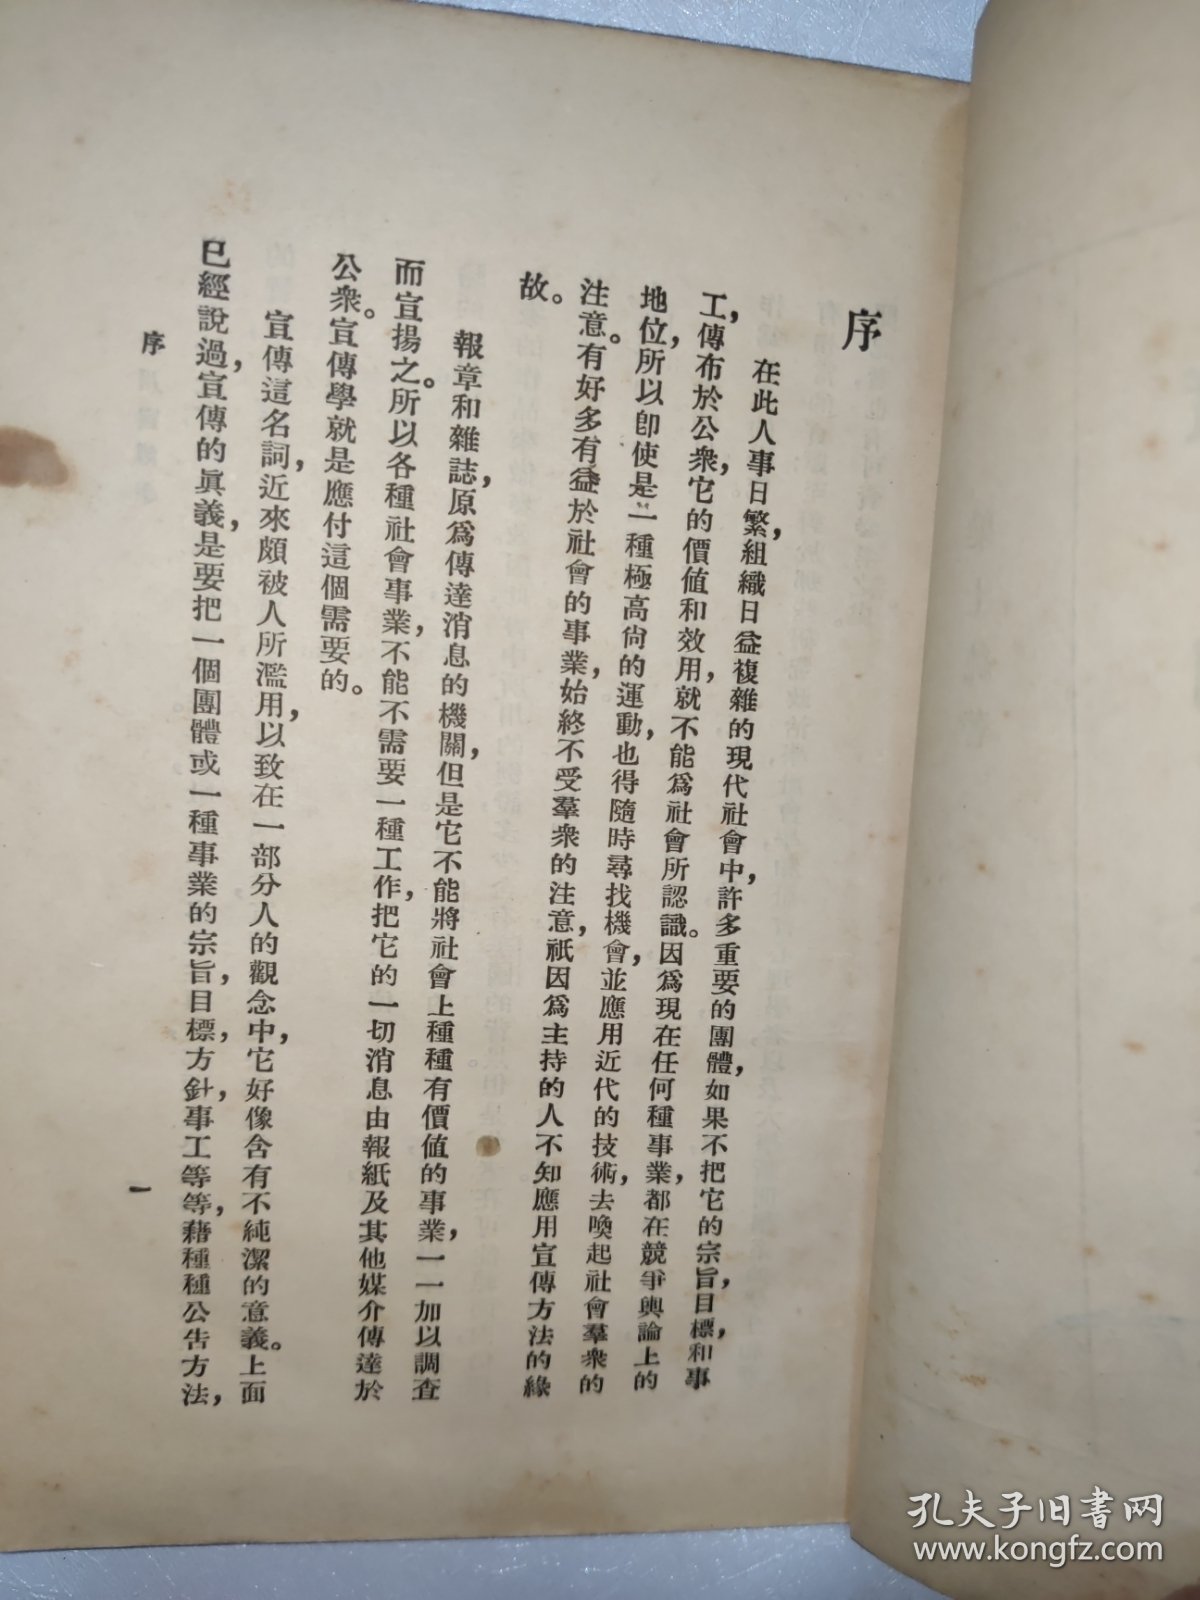 序
在此人事日繁，組織日益複雜的現代社會中，許多重要的團體，如果不把它的宗旨，目標，和事
工，傳布於公衆，它的價値和效用，就不能爲社會所認識。因爲現在任何種事業，都在競爭輿論上的
地位，所以卽使是一種極高尙的運動，也得隨時尋找機會，並應用近代的技術，去喚起社會羣衆的
注意。有好多有益於社會的事業，始終不受羣衆的注意，祇因爲主持的人不知應用宣傳方法的緣
故。
報章和雜誌，原爲傳達消息的機關，但是它不能將社會上種種有價値的事業，一一加以調查
而宣揚之。所以各種社會事業，不能不需要一種工作，把它的一切消息由報紙及其他媒介傳達於
公衆。宣傳學就是應付這個需要的。
宣傳這名詞，近來頗被人所濫用，以致在一部分人的觀念中，它好像含有不純潔的意義。上面
已經說過，宣傳的眞義，是要把一個團體或一種事業的宗旨，目標，方針，事工等等，藉種種公告方法，
序
一
孔夫子旧书网
www.kongfz.com